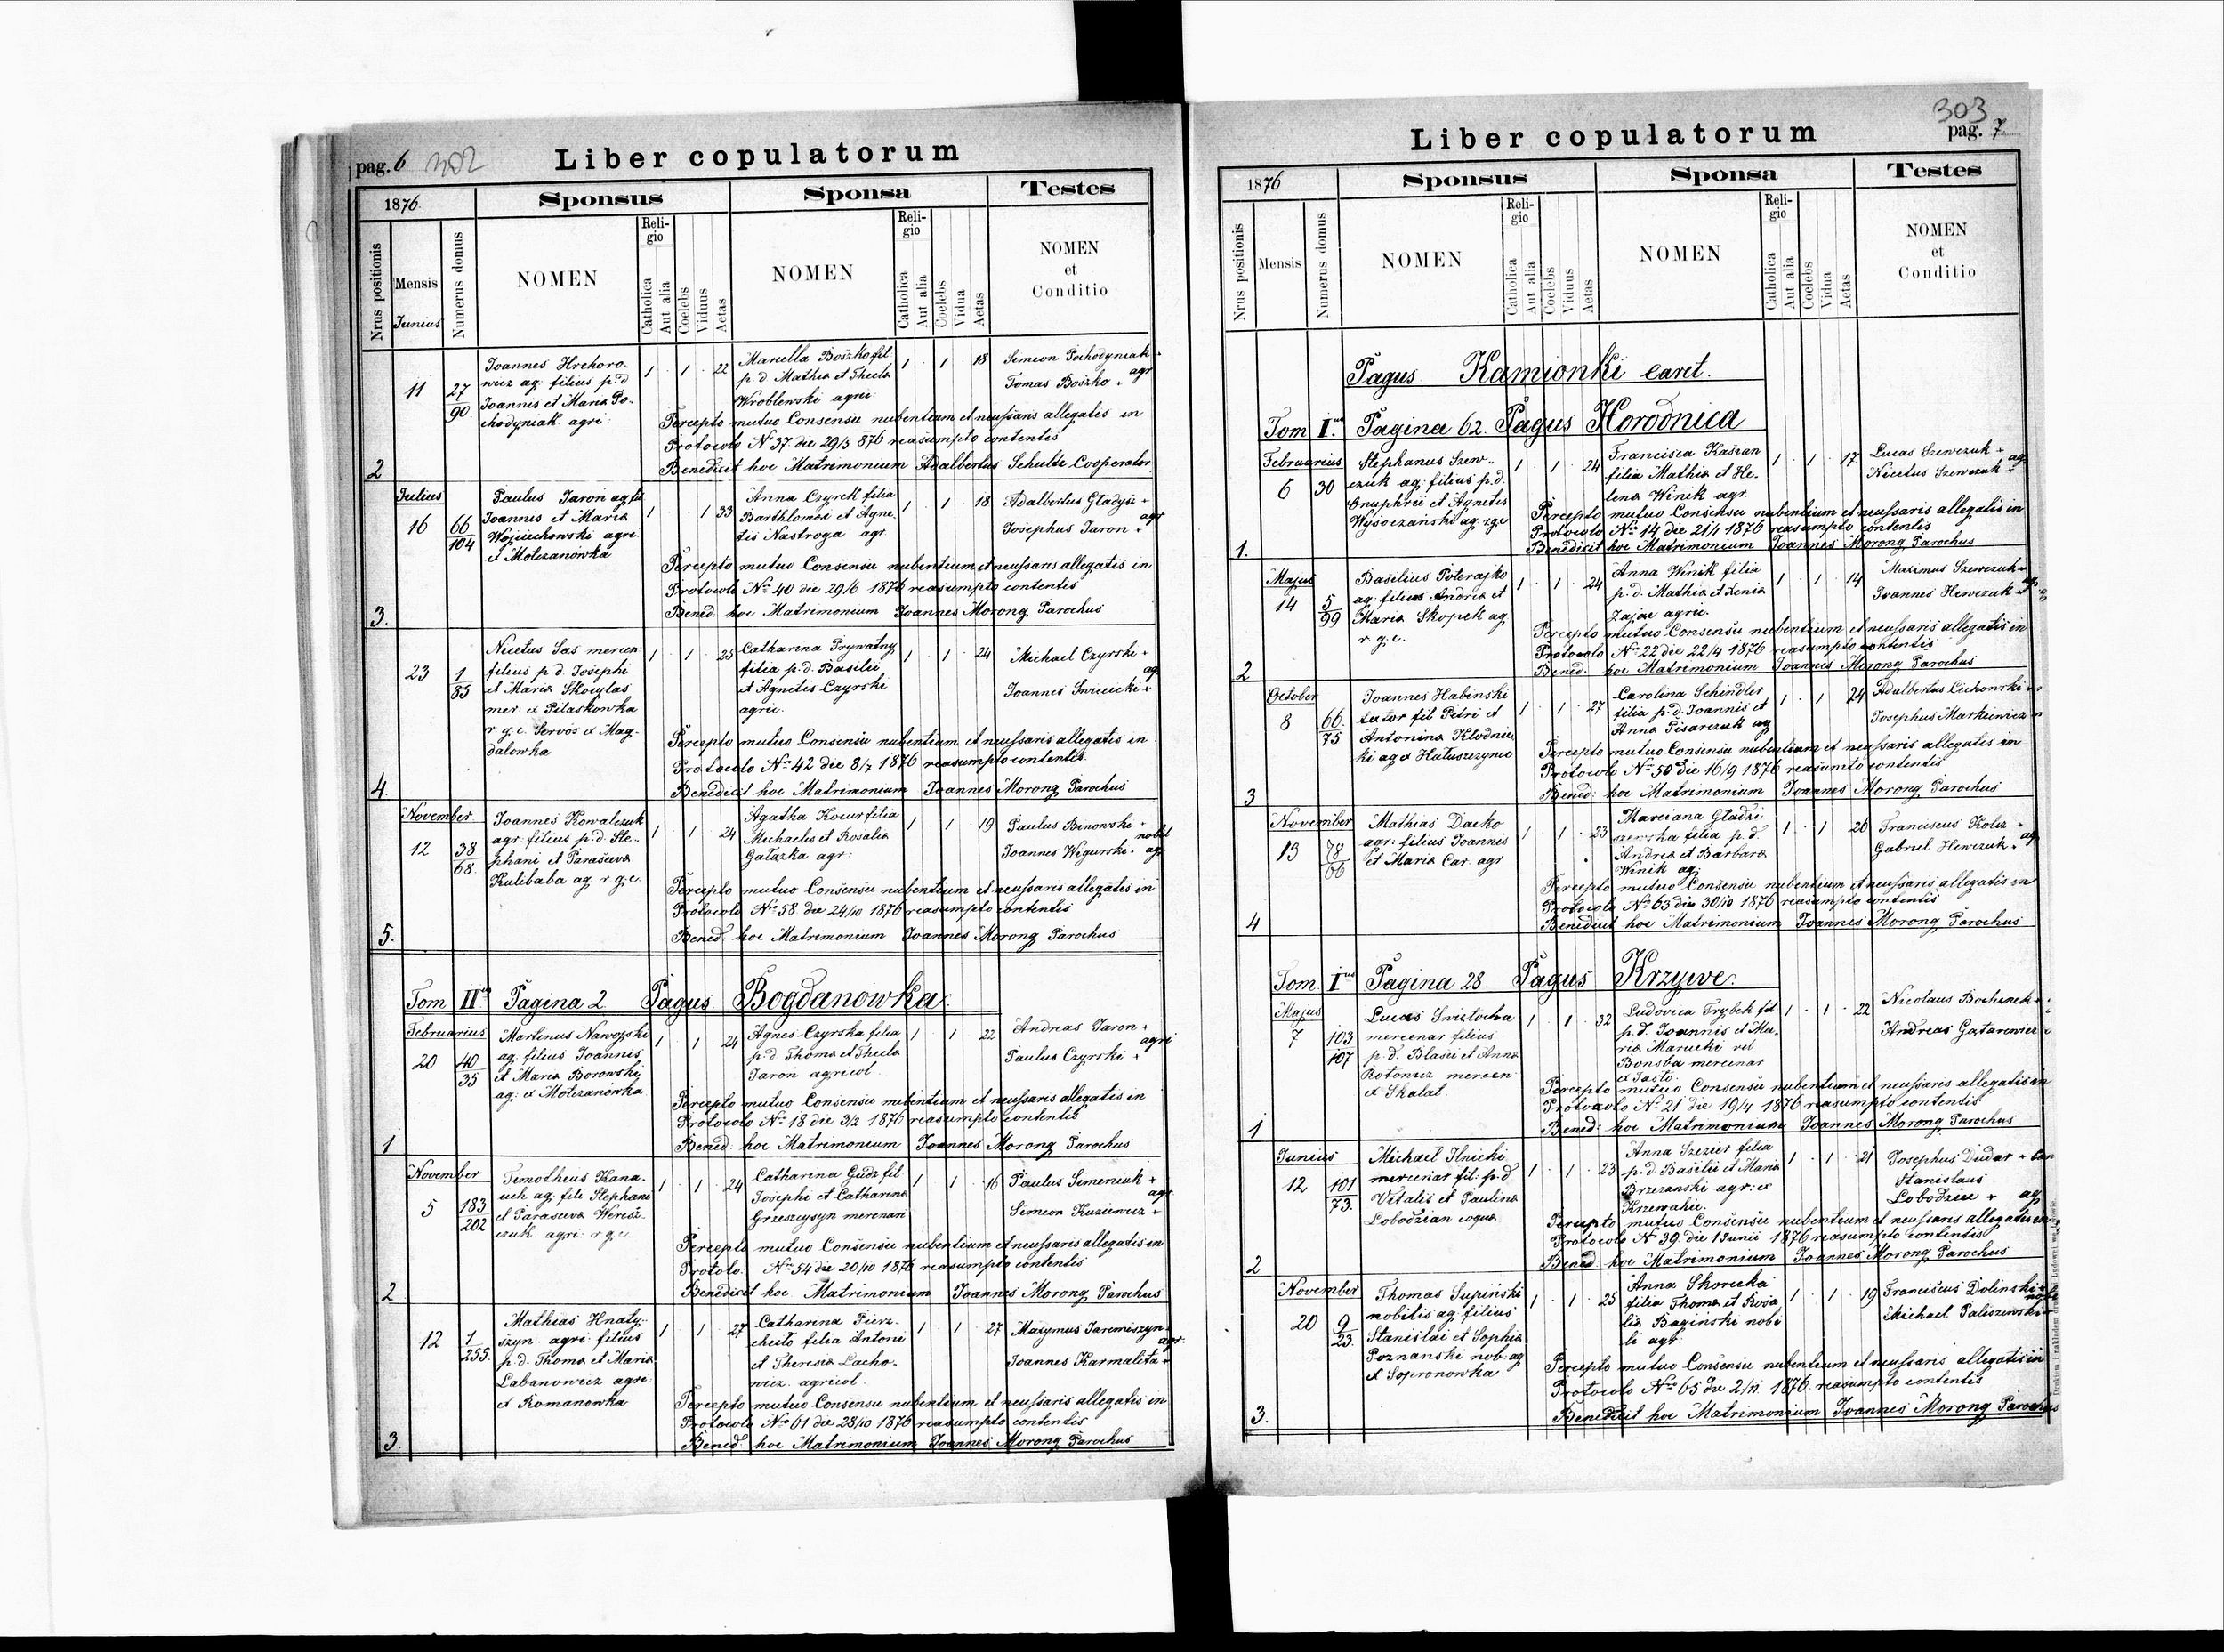 pag. 6 302
Liber copulatorum
1876.
Sponsus
Sponsa
Testes
Nrus positionis
Mensis
Junius
Numerus domus
NOMEN
Religio
Catholica
Aut alia
Coelebs
Viduus
Aetas
NOMEN
Religio
Catholica
Aut alia
Coelebs
Vidua
Aetas
NOMEN
et
Conditio
2
11
27
90
Joannes Hrehoro-
wicz ag: filius p.d
Joannis et Maria Po-
chodyniak agri:
1 1 22
Marella Boszko fil
p.d Mathia et Thecla
Wroblewski agri:
1 1 18
Simeon Pochodyniak +
agr
Tomas Boszko +
Percepto mutuo Consensu nubentium et neussaris allegatis in
Protocolo No 37 die 29/5 876 reasumpto contentis
Benedixit hoc Matrimonium Adalbertus Schultz Cooperator
3.
Julius
16
66
104
Paulus Jaron ag fil
Joannis et Maria
Wojciechowski agri
ex Mołczanowka
1 1 33
Anna Czyrek filia
Barthlomei et Agne-
tis Nastroga agr
1 1 18
Adalbertus Gładysz +
agr
Josephus Jaron +
Percepto mutuo Consensu nubentium et neussaris allegatis in
Protocolo Nro 40 die 29/6 1876 reasumpto contentis
Bened: hoc Matrimonium Joannes Morong Parochus
4.
23
1
85
Nicetus Sas mercen
filius p.d. Josephi
et Maria Skocylas
mer. ex Pilaskowka
r.g.c. Servos ex Mag-
dalowka
1 1 25
Catharina Prywatny
filia p.d. Basilii
et Agnetis Czyrski
agric.
1 1 24
Michael Czyrski +
ag
Joannes Swicicki +
Percepto mutuo Consensu nubentium et neussaris allegatis in
Protocolo Nro 42 die 8/7 1876 reasumpto contentis.
Benedixit hoc Matrimonium Joannes Morong Parochus
5.
November
12
38
68.
Joannes Kowalczuk
agr: filius p.d. Ste-
phani et Parasceva
Kulibaba ag r.g.c.
1 1 24
Agatha Kocur filia
Michaelis et Rosalia
Gałazka agr:
1 1 19
Paulus Binowski +
nobil
Joannes Wegurski + ag
Percepto mutuo Consensu nubentium et neussaris allegatis in
Protocolo Nro 58 die 24/10 1876 reasumpto contentis
Bened: hoc Matrimonium Joannes Morong Parochus
Tom IIus Pagina 2 Pagus Bogdanowka.
1
Februarius
20
40
35
Martinus Nawojski
ag. filius Joannis
et Maria Borowski
ag: ex Mołczanowka
1 1 24
Agnes Czyrska filia
p.d Thoma et Thecla
Jaron agricol.
1 1 22
Andreas Jaron +
agri
Paulus Czyrski +
Percepto mutuo Consensu nubentium et neussaris allegatis in
Protocolo Nro 18 die 3/2 1876 reasumpto contentis
Bened: hoc Matrimonium Joannes Morong Parochus
2
November
5
183
202
Timotheus Kana-
uch ag: fili Stephani
et Parasceva Weresz-
czuk agri: r.g.c.
1 1 24
Catharina Gudz fil
Josephi et Catharina
Grzeszcysyn mercnari
1 1 16
Paulus Simeniuk +
agr
Simeon Kuziewicz +
Percepto mutuo Consensu nubentium et neussaris allegatis in
Protolo. Nro 54 die 20/10 1876 reasumpto contentis
Benedixit hoc Matrimonium Joannes Morong Parochus
3.
12
1
255.
Mathias Hnaty-
szyn. agri: filius
p.d. Thoma et Maria
Labanowicz agri:
ex Romanowka
1 1 27
Catharina Pierz-
cheilo filia Antoni
et Theresia Lacho-
wicz. agricol.
1 1 27
Maxymus Jaremiszyn +
agr:
Joannes Karmalita +
Percepto mutuo Consensu nubentium et neussaris allegatis in
Protocolo Nro 61 die 28/10 1876 reasumpto contentis
Bened: hoc Matrimonium Joannes Morong Parochus
303
pag. 7
Liber copulatorum
1876
Sponsus
Sponsa
Testes
Nrus positionis
Mensis
Numerus domus
NOMEN
Religio
Catholica
Aut alia
Coelebs
Viduus
Aetas
NOMEN
Religio
Catholica
Aut alia
Coelebs
Vidua
Aetas
NOMEN
et
Conditio
Pagus Kamionki caret.
Tom Ius Pagina 62. Pagus Horodnica
1.
Februarius
6 30
Stephanus Szew-
czuk ag: filius p.d.
Onuphrii et Agnetis
Wysoczański ag. r.g.c
1 1 24
Francisca Kaszan
filia Mathia et He-
lena Winik agr.
1 1 17
Lucas Szewczuk +
ag
Nicetus Szewczuk +
Percepto mutuo Consensu nubentium et neussaris allegatis in
Protocolo Nro 14 die 21/1 1876 reasumpto contentis
Benedixit hoc Matrimonium Joannes Morong Parochus
2
Majus
14
5
99
Basilius Poterajko
ag: filius Andrea et
Maria Skopek ag
r.g.c.
1 1 24
Anna Winik filia
p.d. Mathia et Xenia
Zajac agric.
1 1 14
Maximus Szewczuk +
ag
Joannes Hewczuk +
Percepto mutuo Consensu nubentium et neussaris allegatis in
Protocolo Nro 22 die 22/4 1876 reasumpto contentis
Bened: hoc Matrimonium Joannes Morong Parochus
3
October
8
66.
75
Joannes Habinski
sutor fil Petri et
Antonina Kłodnic-
ki ag ex Hałuszczynce
1 1 27
Carolina Schindler
filia p.d. Joannis et
Anna Pisarczuk ag
1 1 24
Adalbertus Cichowski +
Josephus Markiewicz +
Percepto mutuo Consensu nubentium et neussaris allegatis in
Protocolo Nro 50 die 16/9 1876 reasumto contentis
Bened: hoc Matrimonium Joannes Morong Parochus
4
November
13
78
66
Mathias Dacko
agr: filius Joannis
et Maria Car. agr
1 1 23
Marciana Gładzi-
szewska filia p.d.
Andrea et Barbara
Winik ag.
1 1 26
Franciscus Kolcz +
ag
Gabriel Hewczuk +
Percepto mutuo Consensu nubentium et neussaris allegatis in
Protocolo Nro 63 die 30/10 1876 reasumpto contentis
Benedixit hoc Matrimonium Joannes Morong Parochus
Tom. Ius Pagina 28. Pagus Krzywe.
1
Majus
7
103
107
Lucas Swistocha
mercenar filius
p.d. Blasii et Anna
Rotowicz mercen
ex Skalat.
1 1 32
Ludovica Trybek fil
p.d. Joannis et Ma-
ria Marucki vel
Bonsba mercenar
ex Jasło.
1 1 22
Nicolaus Bochenek +
Andreas Gatarewicz
Percepto mutuo Consensu nubentium et neussaris allegatis in
Protocolo Nro 21 die 19/4 1876 reasumpto contentis
Bened: hoc Matrimonium Joannes Morong Parochus
2
Junius
12
101
73.
Michael Ilnicki
mercenar fil: p.d
Vitalis et Paulina
Lobodzian coqua
1 1 23
Anna Szezier filia
p.d. Basilii et Maria
Brzezanski agr: ex
Krzewahie.
1 1 21
Josephus Dudar +
Stanislaus
Lobodziec + ag
Percepto mutuo Consensu nubentium et neussaris allegatis in
Protocolo No 39. die 1 Junii 1876 reasumpto contentis
Bened: hoc Matrimonium Joannes Morong Parochus
3.
November
20
9
23.
Thomas Supiński
nobilis ag: filius
Stanislai et Sophia
Poznanski nob: ag
ex Sopronowka.
1 1 25
Anna Skorecka
filia Thoma et Rosa-
lia Baginski nobi-
li agr:
1 1 19
Franciscus Dolinski +
nobil
Michael Paliszewski +
Percepto mutuo Consensu nubentium et neussaris allegatis in
Protocolo Nro 65 die 2/11 1876. reasumpto contentis
Benedixit hoc Matrimonium Joannes Morong Parochus